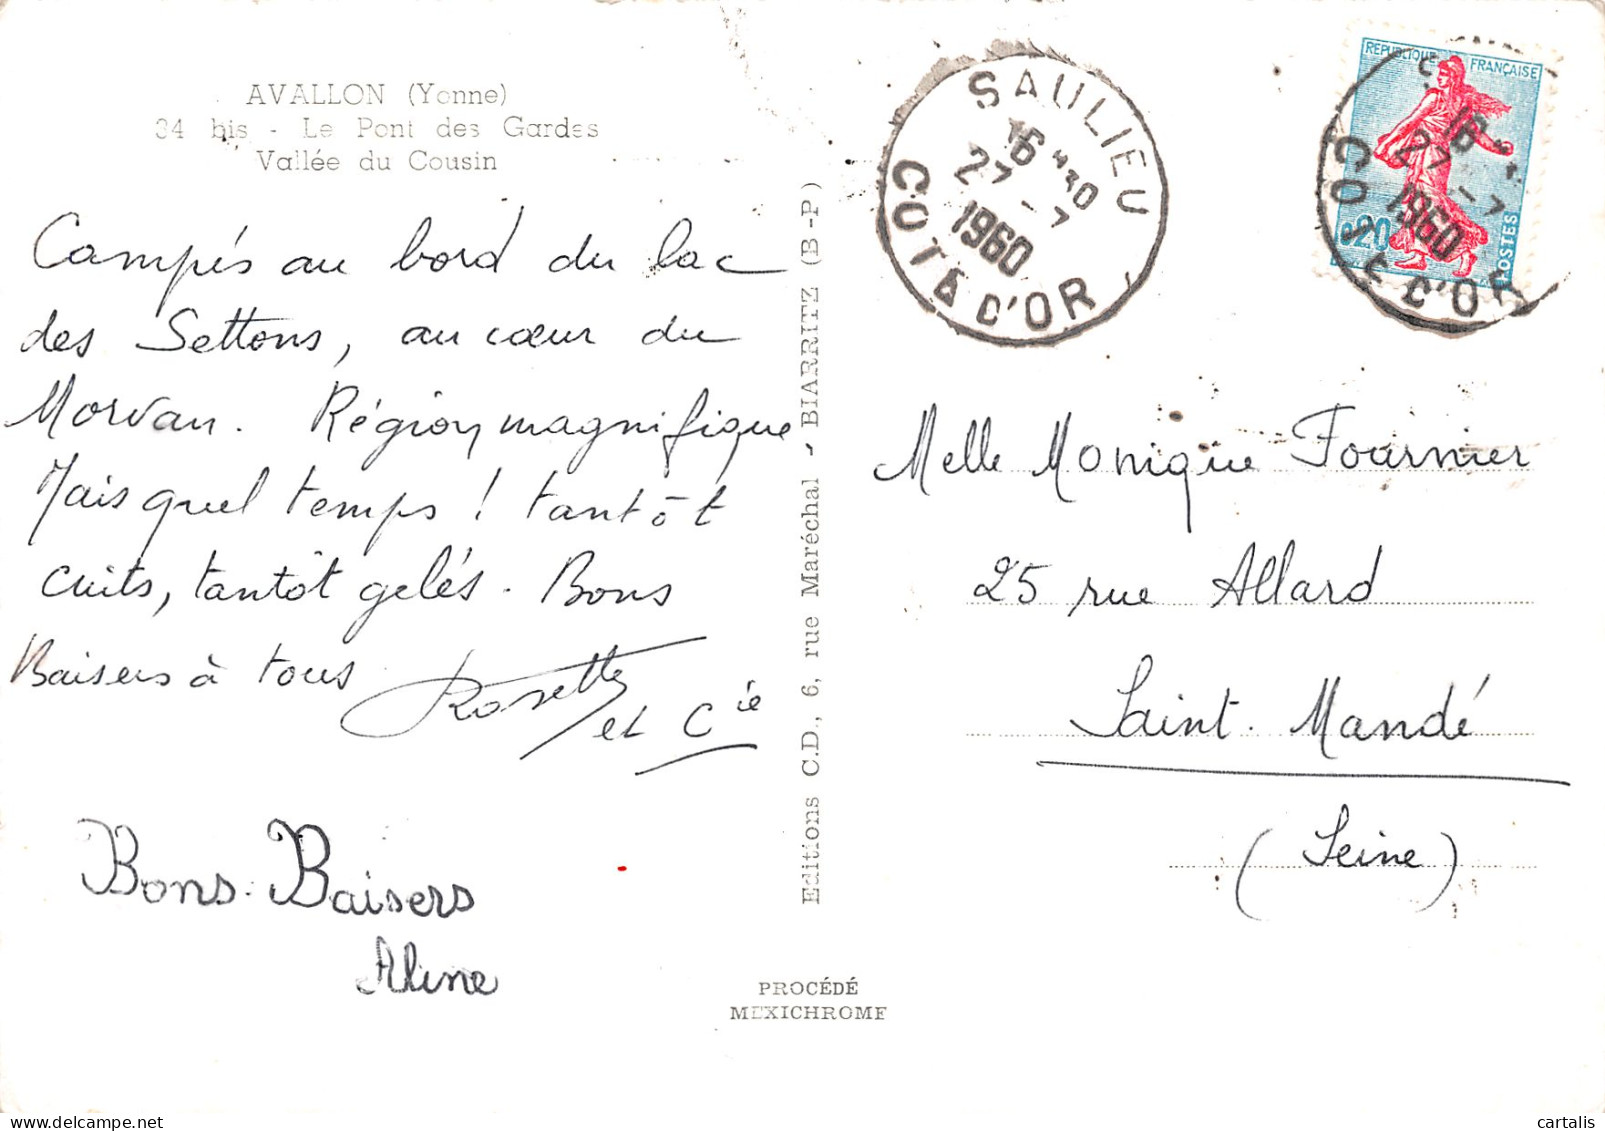 AVALLON (Yonne)
34 bis - Le Pont des Gardes
Vallée du Cousin
Campés au bord du lac
des Settons, au cœur du
Morvan. Région magnifique
Mais quel temps ! tantôt
cuits, tantôt gelés. Bons
Baisers à tous
Rosette
et Cie
Bons Baisers
Aline
Editions C.D., 6, rue Maréchal - BIARRITZ (B-P)
PROCÉDÉ
MEXICHROME
SAULIEU
16 H30
27 - 7
1960
COTE D'OR
REPUBLIQUE FRANÇAISE
0,20
POSTES
16
27 - 7
1960
COTE D'OR
Melle Monique Fournier
25 rue Allard
Saint-Mandé
(Seine)
cartalis
delcampe.net